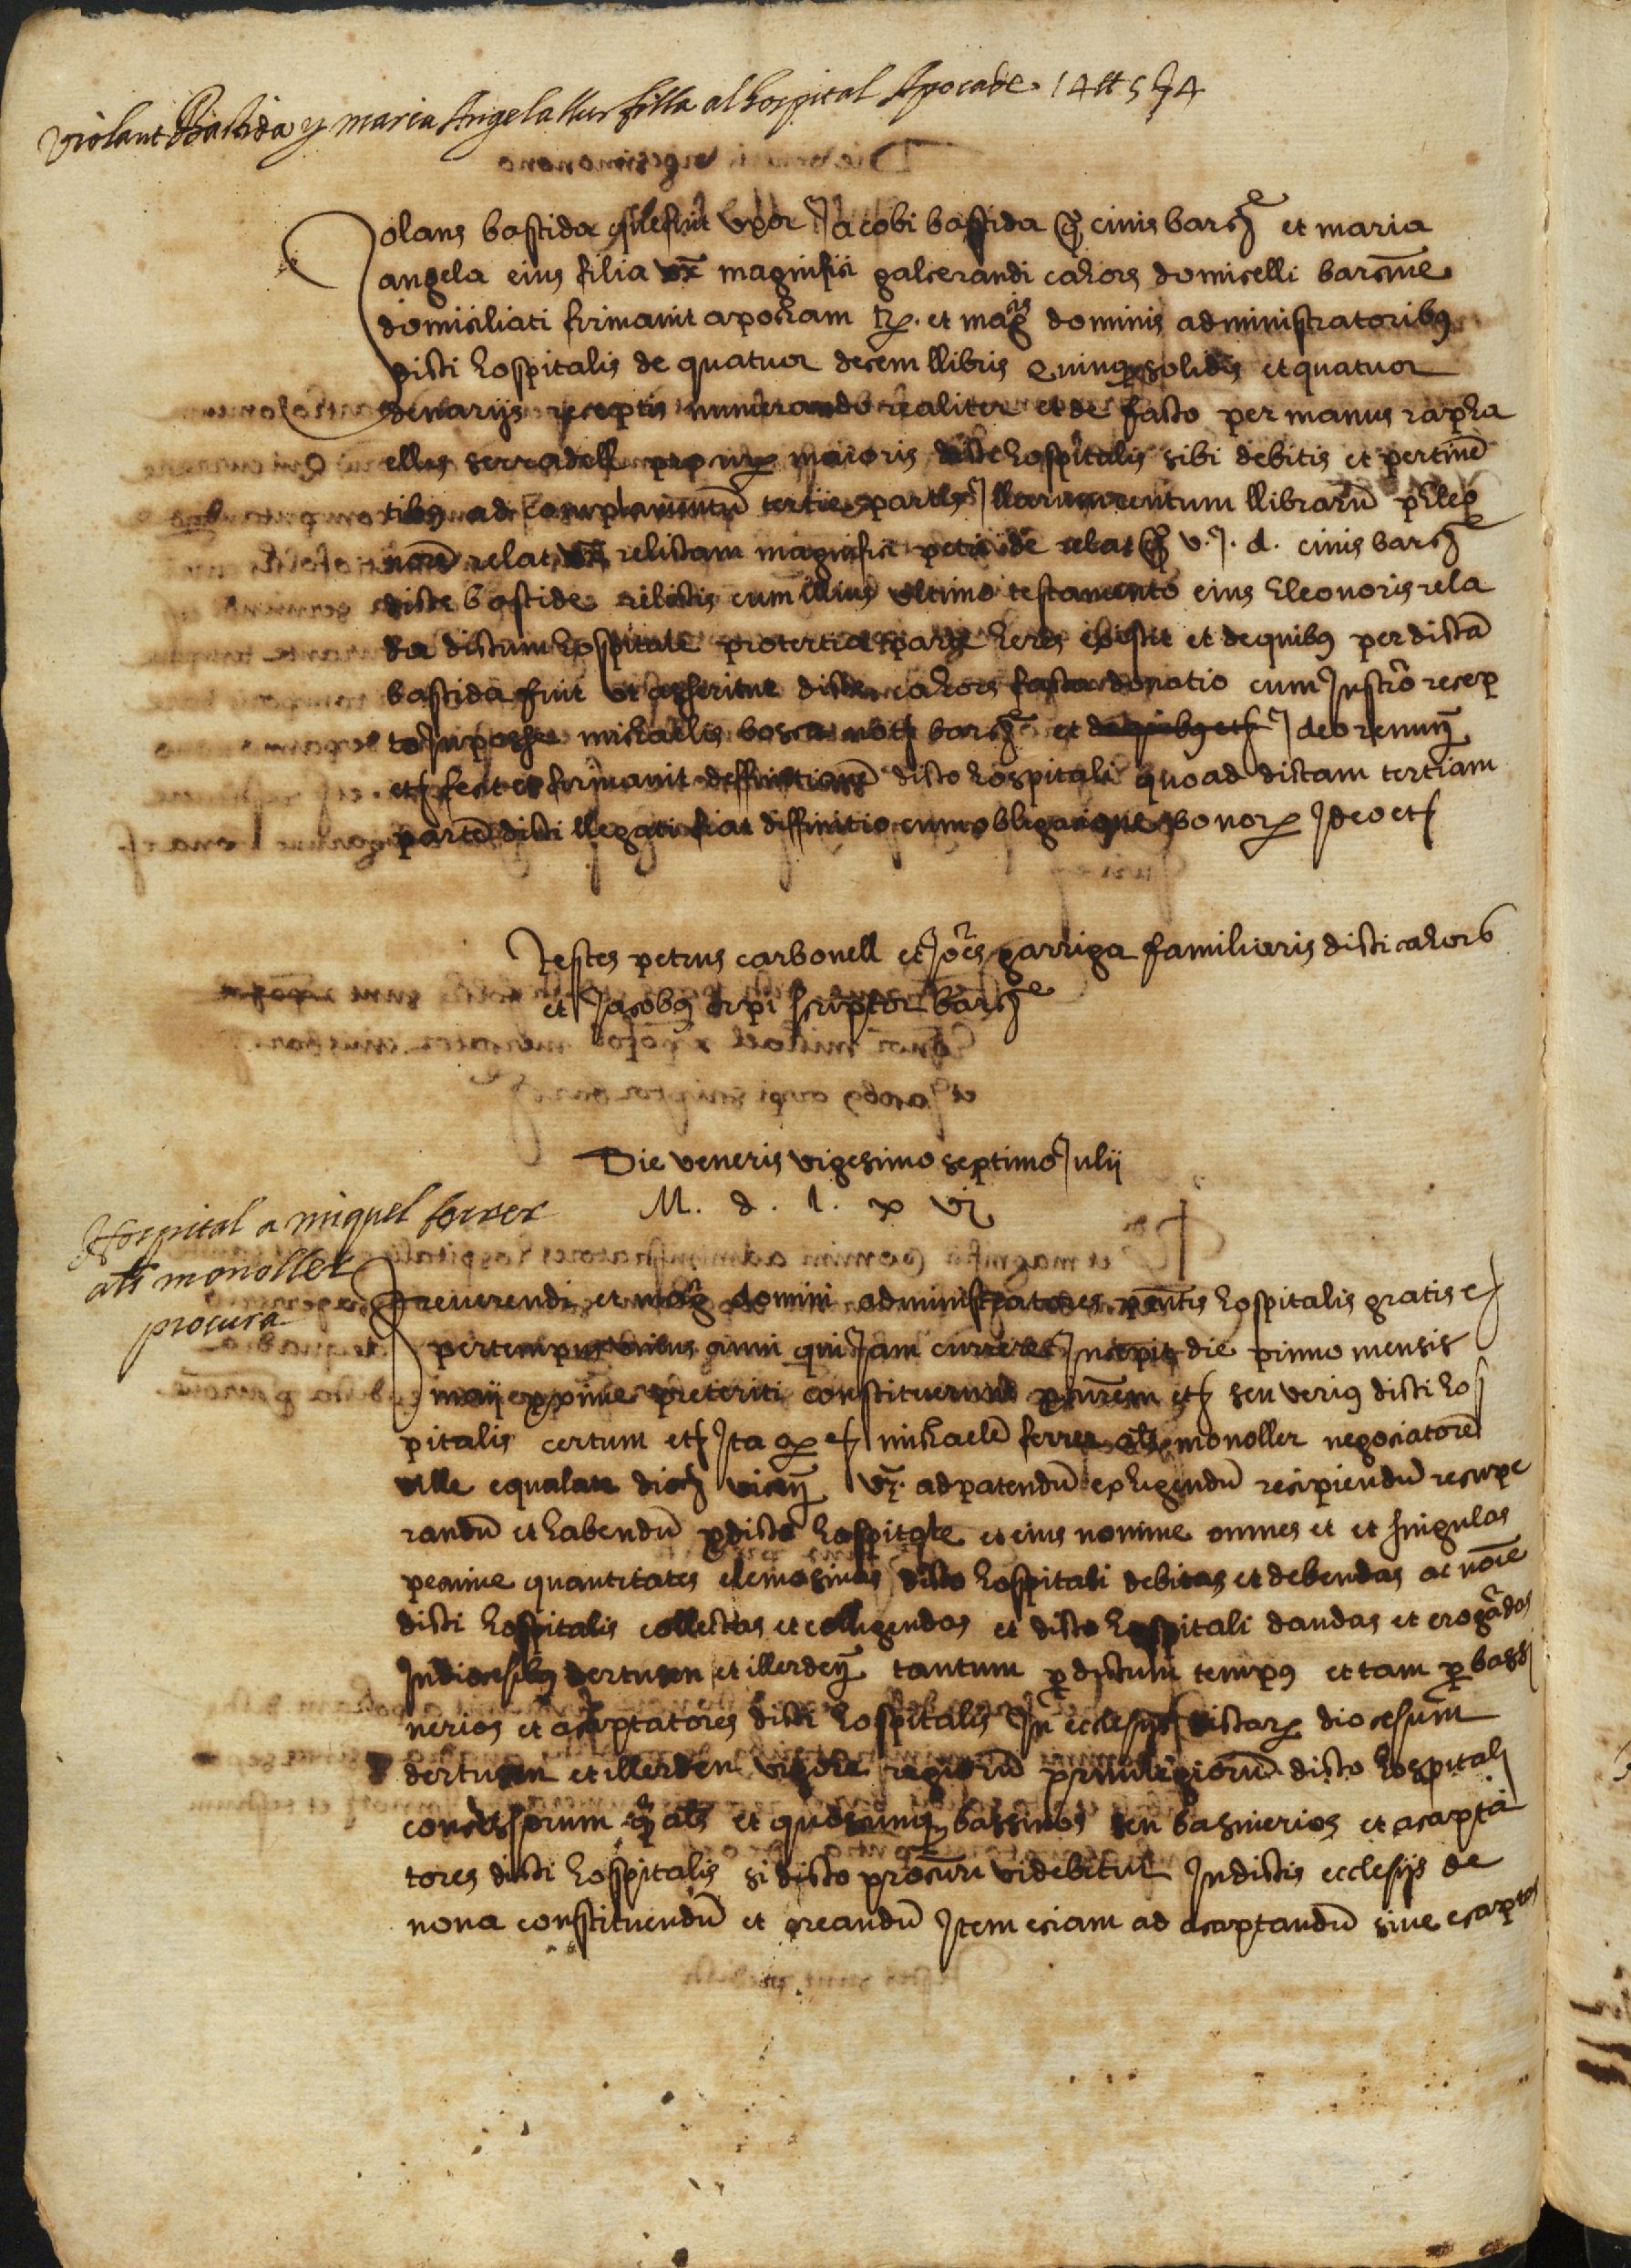 Violant Bastida y maria Angela llur filla al hospital Apoca de 14 ℔ 5 ẜ 4
Jolans bastida que fuit uxor Jacobi bastida q̊ civis barcͤ et maria
angela eius filia uxͬ magnifici galcerandi cahors domicelli barcn̄e
domiciliati firmavit apocham R. et magcis dominis administratoribꝯ
dicti hospitalis de quatuor decem llibris quinqȝ solidis et quatuor
denarijs receptis numerando realiter et de facto per manus rapha
ellis serradell procurꝭ maioris dicti hospitalis sibi debitis et pertinē
tibꝯ ad complamentū tertie partis Illarum centum llibrarū per leo
norē relat uxͬ relictam magnifici petri de relat q̊ v. J. d. civis barcͤ
dicte bastide relictis cum illius ultimo testamento eius Eleonoris rela
da dictum hospitale pro tertia parte heres existit et de quibꝯ per dictā
bastida fuit ut asseritur dicte cahors facta donatio cum Instrō recep
to In posse michaelis bosca notͭ barcͤ et Ideo renunȳ
etȝ fecit et firmavit deffinitionē dicto hospitali quo ad dictam tertiam
partē dicti llegati fiat diffinitio cum obligacione bonorꝝ Ideo etȝ
Testes petrus carbonell et Joēs garriga familiaris dicti cahors
et Jacobꝯ orpi scriptor barcͤ
Die veneris vigesimo septimo Julij
M. d. l. x vj
Hospital a miquel ferrer
als monoller
procura
Reverendi et magci domini administratores pn̄tis hospitalis gratis eȝ
per tempus unius anni qui Jam currere Incepit die primo mensis
maij proxime preteriti constituerunt procurem etȝ seu verius dicti hos
pitalis certum etȝ Ita qꝫ eȝ michaelē ferrer als monoller negociatorē
ville equalate diocȝ vicen̄ vꝫ. ad patendū exhigendū recipiendū recupe
randū et habendū pro dicto hospitale et eius nomine omnes et et singulas
pecunie quantitates elemosinas dicto hospitali debitas et debendas ac noīe
dicti hospitalis collectas et colligendas et dicto hospitali dandas et erogādas
In diocesibꝯ dertusen et illerden̄ tantum per dictum tempꝯ et tam per bassi
nerios et acaptatores dicti hospitalis In ecclesijs dictarꝝ diocesum
dertusen et illerden vigore regiorū privilegiorū dicto hospitali
concessorum qꝫ als et quoscumqȝ bassinos seu basinerios et acapta
tores dicti hospitalis si dicto procuri videbitur In dictis ecclesijs de
nova constituendū et creandū Item eciam ad acaptandū sive acaptas